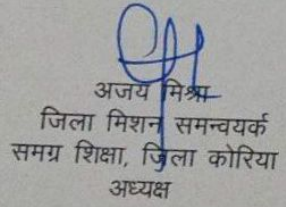 अजय मिश्रा
जिला मिशन समन्वयर्क
समग्र शिक्षा, जिला कोरिया
अध्यक्ष